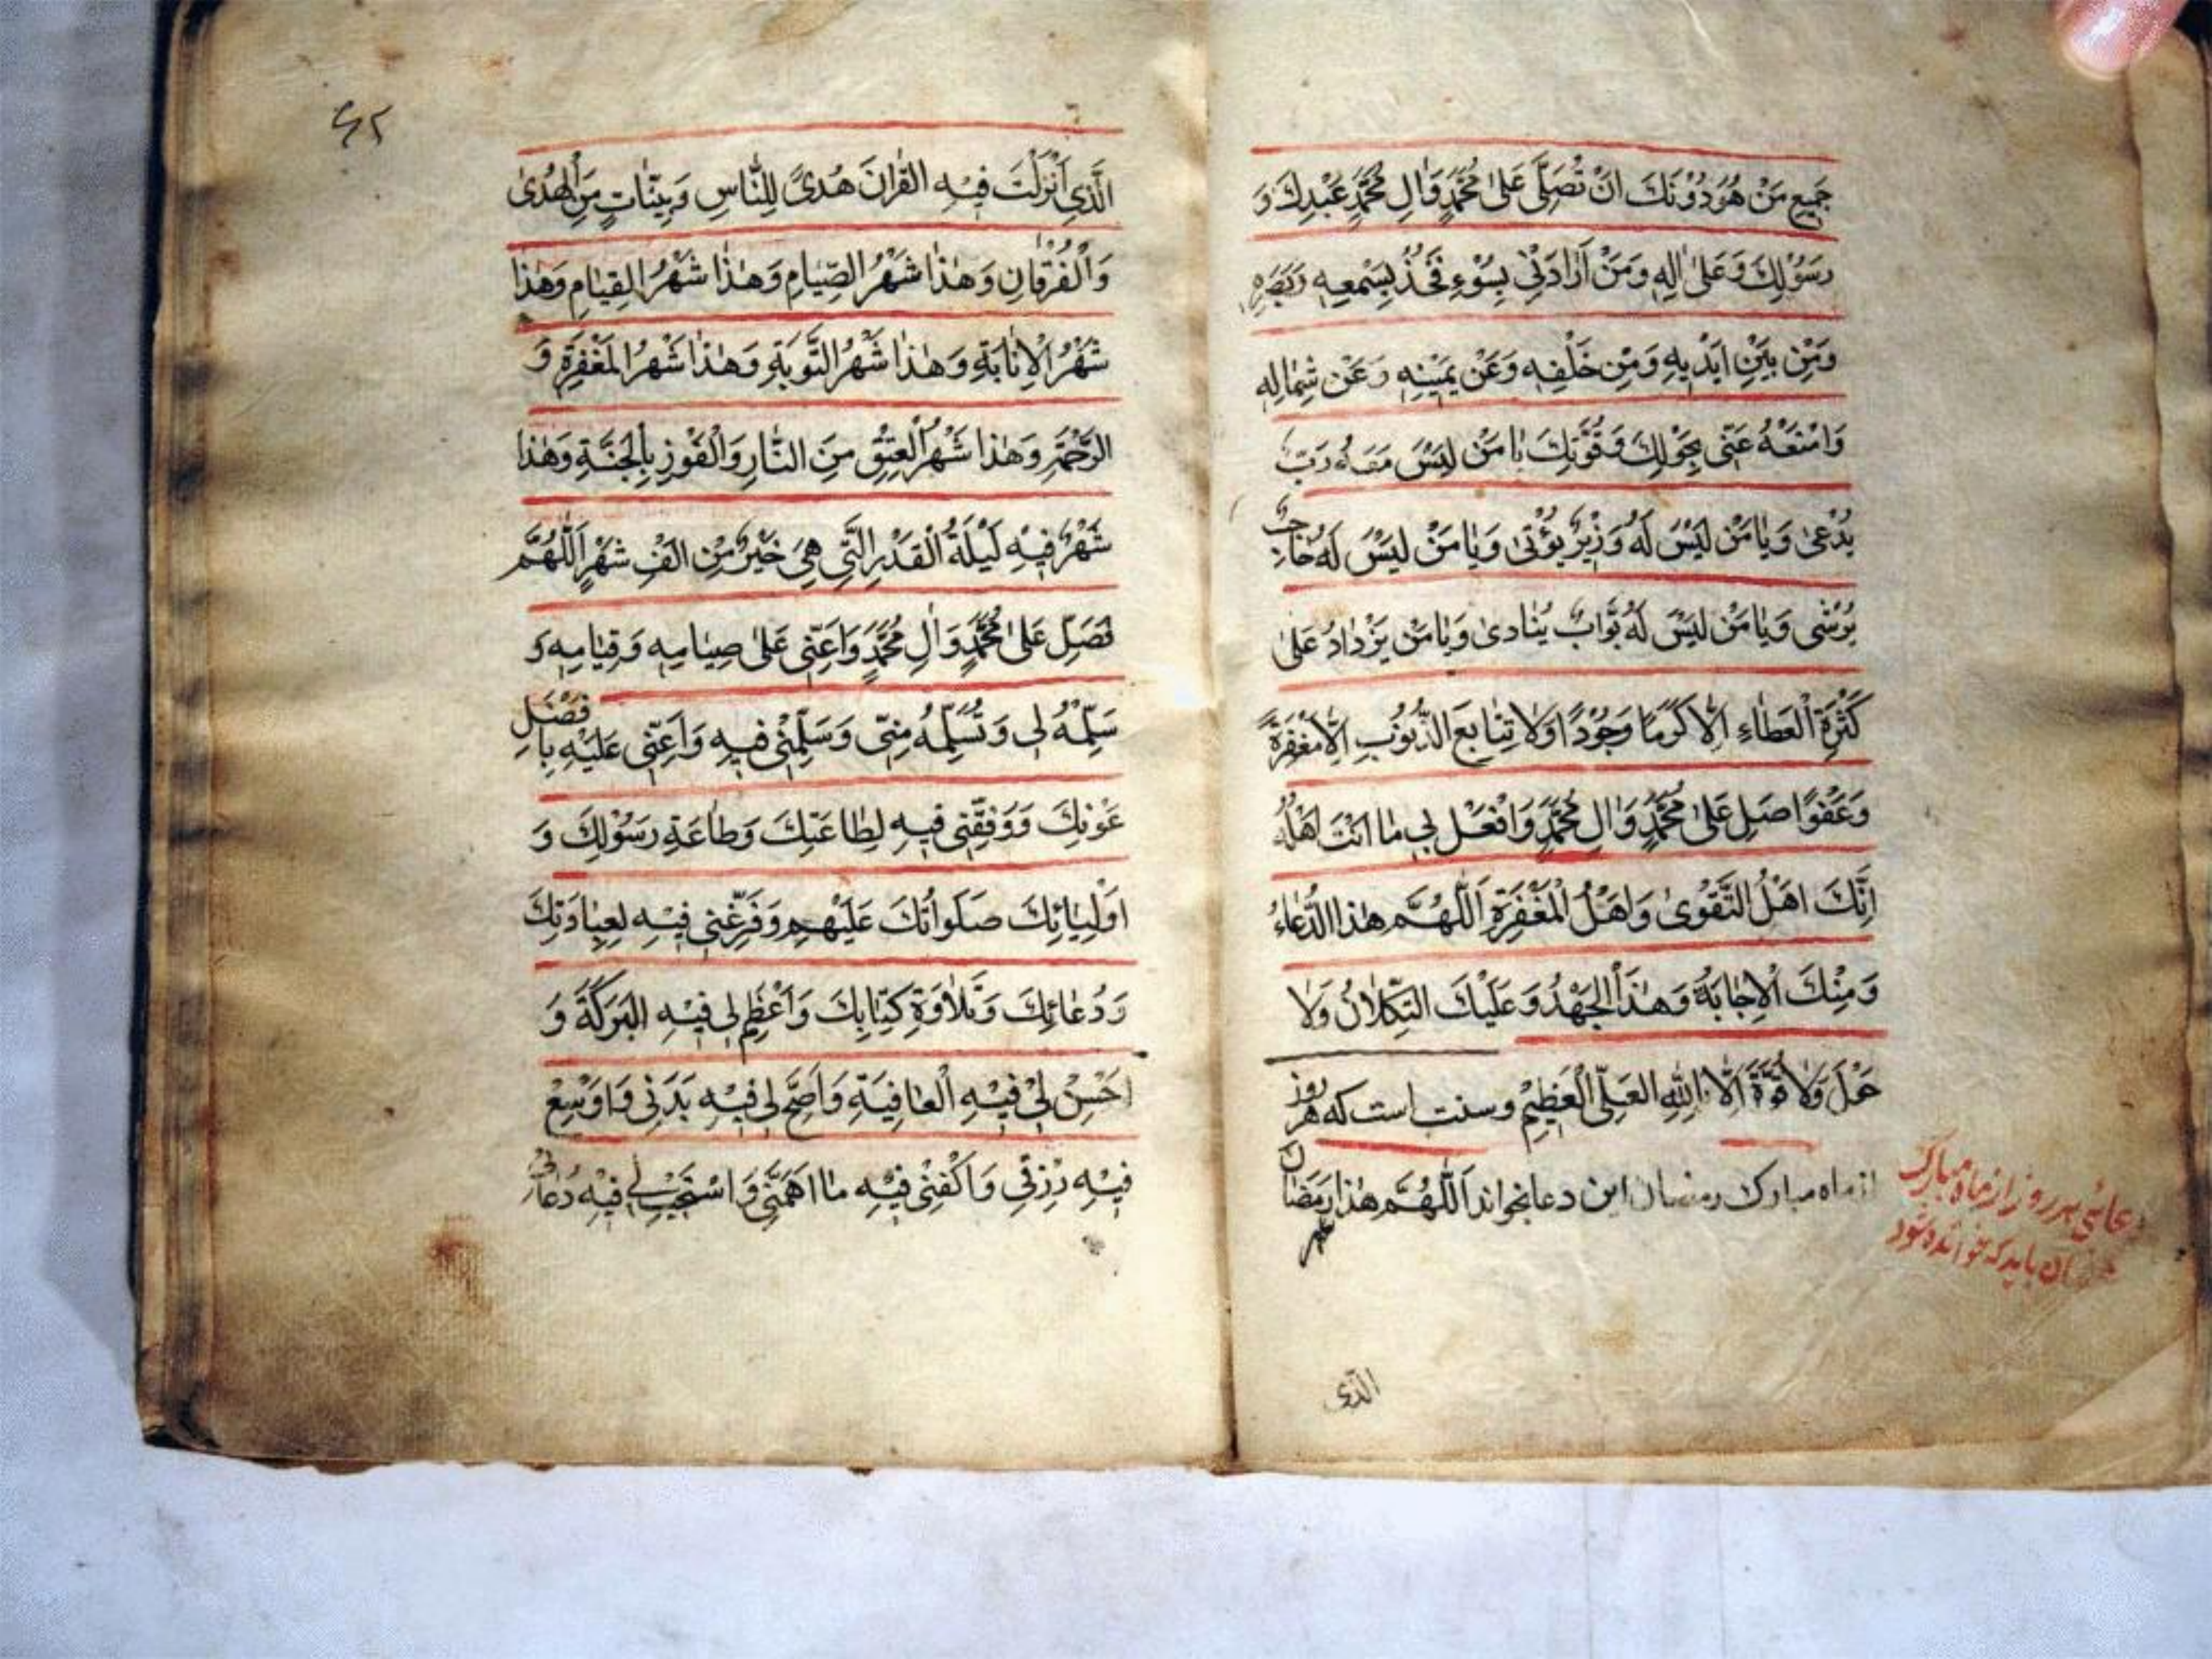 جَمیعِ مَنْ هُوَ دُوْنَكَ اَنْ تُصَلِّیَ عَلیٰ مُحَمَّدٍ وَاٰلِ مُحَمَّدٍ عَبْدِكَ وَ
رَسُوْلِكَ وَعَلیٰ اٰلِهِ وَمَنْ اَرَادَنِیْ بِسُوْءٍ فَخُذْ بِسَمْعِهِ وَبَصَرِهِ
وَمِنْ بَیْنِ اَیْدیهِ وَمِنْ خَلْفِهِ وَعَنْ یَمیْنِهِ وَعَنْ شِمٰالِهِ
وَامْنَعْهُ عَنّی بِحَوْلِكَ وَقُوَّتِكَ یٰا مَنْ لَیْسَ رَبّ
یُدْعیٰ وَیٰا مَنْ لَیْسَ لَهُ وَزیْرٌ یُؤْتیٰ وَیٰا مَنْ لَیْسَ لَهُ حٰاجِبٌ
یُرْشیٰ وَیٰا مَنْ لَیْسَ لَهُ بَوّابٌ یُنٰادیٰ وَیٰا مَنْ یَزْدٰادُ عَلیٰ
كَثْرَةِ الْعَطٰاءِ اِلّا كَرَمًا وَجُوْدًا وَلا تِتٰابع الذُّنُوْبِ اِلّا مَغْفِرَةً
وَعَفْوًا صَلِ عَلیٰ مُحَمَّدٍ وَاٰلِ مُحَمَّدٍ وَافْعَلْ بی مٰا اَنْتَ اَهْلُهُ
اِنَّكَ اَهْلُ التَّقْویٰ وَاَهْلُ الْمَغْفِرَةِ اَللّٰهُمَّ هٰذَا الدُّعٰاءُ
وَمِنْكَ الْاِجٰابَةُ وَهٰذَا الْجَهْدُ وَعَلَیْكَ التِّكْلٰانُ وَلٰا
حَوْلَ وَلٰا قُوَّةَ اِلَّا بِاللّٰهِ الْعَلِیّ الْعَظِیْمِ وسنت است که هر روز
از ماه مبارک رمضان این دعا بخواند اَللّٰهُمَّ هٰذا رَمَضٰان
مبارک
الّذی
٦٢
الَّذی اَنْزَلْتَ فیْهِ الْقُراٰنَ هُدیً لِلنّٰاسِ وَبَیِّنٰاتٍ مِنَ الْهُدیٰ
وَالْفُرْقٰانِ وَهٰذٰا شَهْرُ الصِّیٰامِ وَهٰذٰا شَهْرُ الْقِیٰامِ وَهٰذٰا
شَهْرُ الْاِنٰابَةِ وَهٰذٰا شَهْرُ التَّوْبَةِ وَهٰذٰا شَهْرُ الْمَغْفِرَةِ وَ
الرَّحْمَةِ وَهٰذٰا شَهْرُ الْعِتْقِ مِنَ النّٰارِ وَالْفَوْزِ بِالْجَنَّةِ وَهٰذٰا
شَهْرٌ فیْهِ لَیْلَةُ الْقَدْرِ الَّتی هِیَ خَیْرٌ مِنْ اَلْفِ شَهْرٍ اَللّٰهُمَّ
فَصَلِّ عَلیٰ مُحَمَّدٍ وَاٰلِ مُحَمَّدٍ وَاَعِنّی عَلیٰ صِیٰامِهِ وَقِیٰامِهِ وَ
سَلِّمْهُ لی وَتُسَلِّمهُ مِنّی وَسَلِّمْنی فیهِ وَاَعِنّی عَلَیْهِ بِاَفْضَلِ
عَوْنِكَ وَوَفِقّنی فیهِ لِطٰاعَتِكَ وَطٰاعَةِ رَسُوْلِكَ وَ
اَوْلِیٰائِكَ صَلَوٰاتُكَ عَلَیْهِم وَفَرِّغْنی فیْهِ لِعِبٰادَتِكَ
وَدُعٰائِكَ وَتِلٰاوَةِ كِتٰابِكَ وَاَعْظِمْ لی فیْهِ الْبَرَكَةَ وَ
اَحْسِنْ لِیْ فیْهِ الْعٰافِیَةَ وَاَصِحَّ لی فیْهِ بَدَنی وَاَوْسِعْ
فیْهِ رِزْقی وَاكْفِنی فیْهِ مٰا اَهَمَّنی وَاسْتَجِبْ لی فیْهِ دُعٰائی